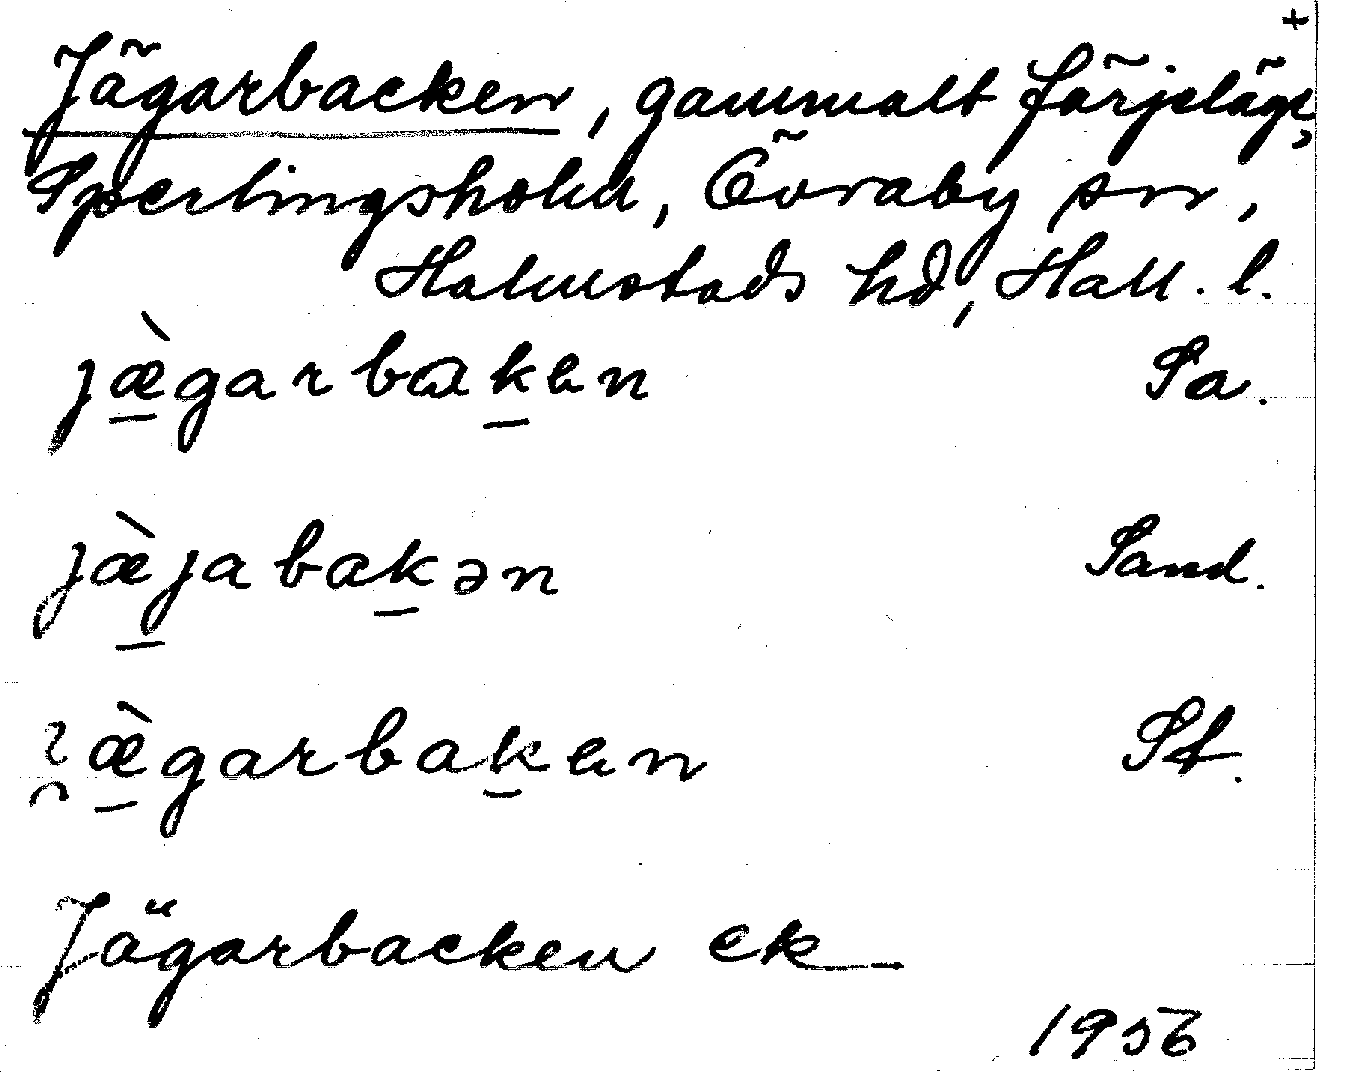 +
Jägarbacken, gammalt färjeläge,
Sperlingsholm, Övraby sn,
Halmstads hd, Hall. l.
jæ̀garbakɐn Sa.
jæ̀jabakən Sand.
ɩ̯æ̀garbakɐn St.
Jägarbacken ek
1956